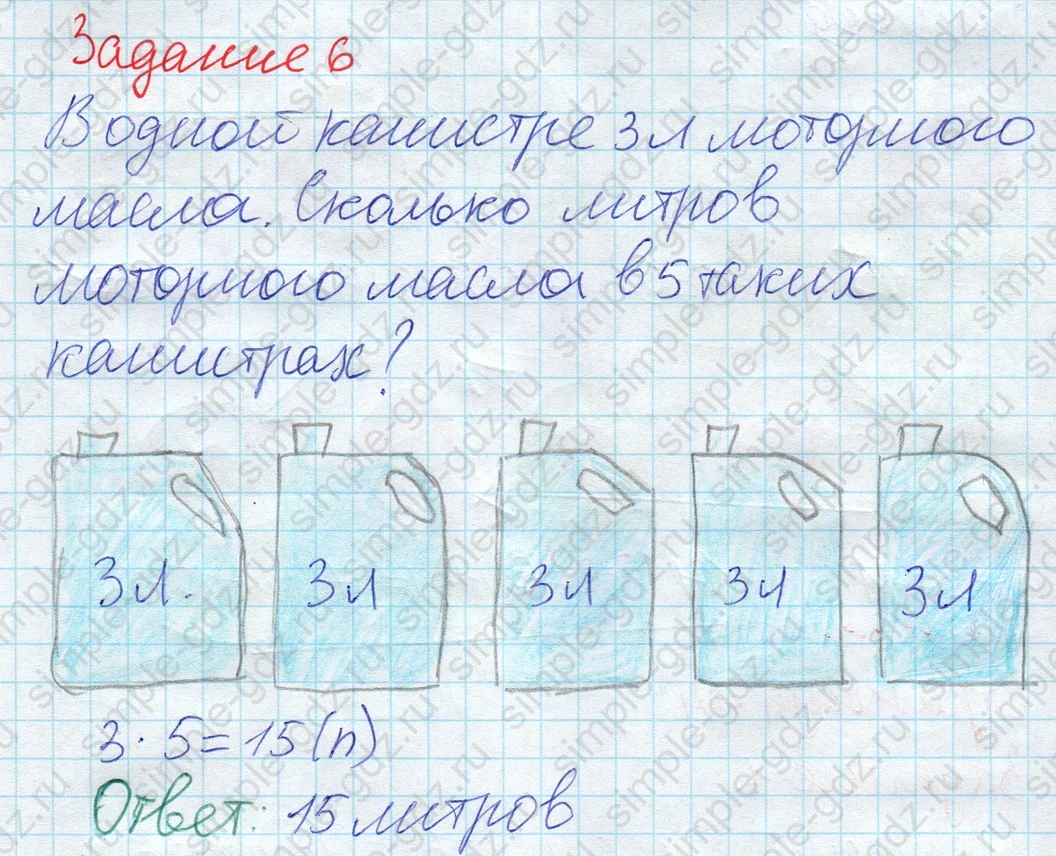 Задание 6
В одной канистре 3 л моторного
масла. Сколько литров
моторного масла в 5 таких
канистрах?
3 л. 3 л 3 л 3 л 3 л
3 · 5 = 15 (л)
Ответ: 15 литров
simple-gdz.ru